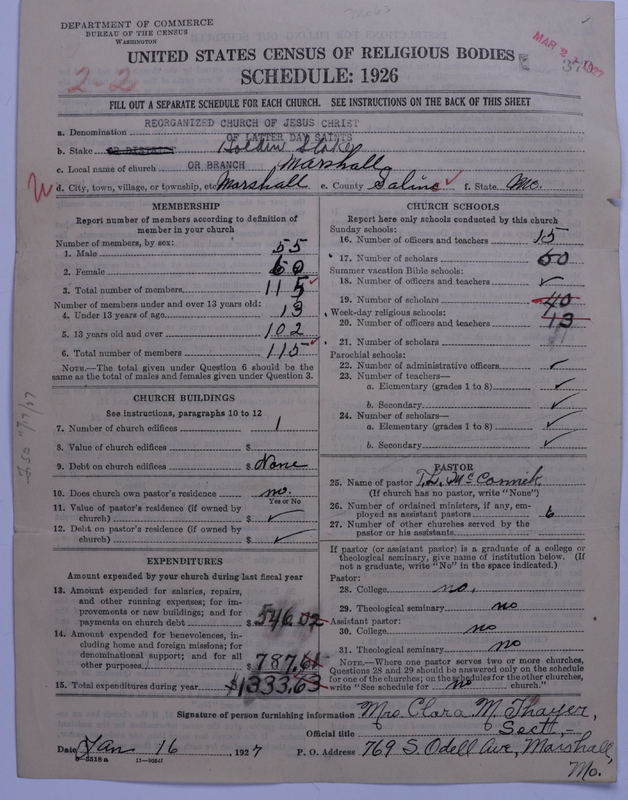 DEPARTMENT OF COMMERCE
BUREAU OF THE CENSUS
WASHINGTON
UNITED STATES CENSUS OF RELIGIOUS BODIES
SCHEDULE: 1926
2-2
FILL OUT A SEPARATE SCHEDULE FOR EACH CHURCH. SEE INSTRUCTIONS ON THE BACK OF THIS SHEET
REORGANIZED CHURCH OF JESUS CHRIST
a. Denomination
OF LATTER DAY SAINTS
b. Stake OR DISTRICT Holden Stake
c. Local name of church OR BRANCH Marshall
d. City, town, village, or township, etc. Marshall e. County Saline f. State Mo.
MEMBERSHIP
Report number of members according to definition of member in your church
Number of members, by sex:
1. Male 55
2. Female 60
3. Total number of members 115
Number of members under and over 13 years old:
4. Under 13 years of age 13
5. 13 years old and over 102
6. Total number of members 115
NOTE.—The total given under Question 6 should be
same as the total of males and females given under Question 3.
CHURCH BUILDINGS
See instructions, paragraphs 10 to 12
7. Number of church edifices 1
8. Value of church edifices $
9. Debt on church edifices $ None
10. Does church own pastor's residence no.
Yes or No
11. Value of pastor's residence (if owned by
church) $ ✓
12. Debt on pastor's residence (if owned by
church) $ ✓
EXPENDITURES
Amount expended by your church during last fiscal year
13. Amount expended for salaries, repairs,
and other running expenses; for im-
provements or new buildings; and for
payments on church debt $ 546.02
14. Amount expended for benevolences, in-
cluding home and foreign missions; for
denominational support; and for all
other purposes $ 787.61
15. Total expenditures during year $1333.63
CHURCH SCHOOLS
Report here only schools conducted by this church
Sunday schools:
16. Number of officers and teachers 15
17. Number of scholars 60
Summer vacation Bible schools:
18. Number of officers and teachers ✓
19. Number of scholars 40
Week-day religious schools:
20. Number of officers and teachers 13
21. Number of scholars
Parochial schools:
22. Number of administrative officers ✓
23. Number of teachers—
a. Elementary (grades 1 to 8) ✓
b. Secondary ✓
24. Number of scholars—
a. Elementary (grades 1 to 8) ✓
b. Secondary ✓
PASTOR
25. Name of pastor T.L. McCormick
(If church has no pastor, write "None")
26. Number of ordained ministers, if any, em-
ployed as assistant pastors 6
27. Number of other churches served by the
pastor or his assistants
If pastor (or assistant pastor) is a graduate of a college or
theological seminary, give name of institution below. (If
not a graduate, write "No" in the space indicated.)
Pastor:
28. College no.
29. Theological seminary no
Assistant pastor:
30. College no
31. Theological seminary no
NOTE.—Where one pastor serves two or more churches,
Questions 28 and 29 should be answered only on the schedule
for one of the churches; on the schedules for the other churches,
write "See schedule for no church."
Signature of person furnishing information Mrs. Clara M. Thayer,
Official title Sect.,-
Date Jan 16 1927 P. O. Address 769 S. Odell Ave, Marshall,
Mo.
8-5518a